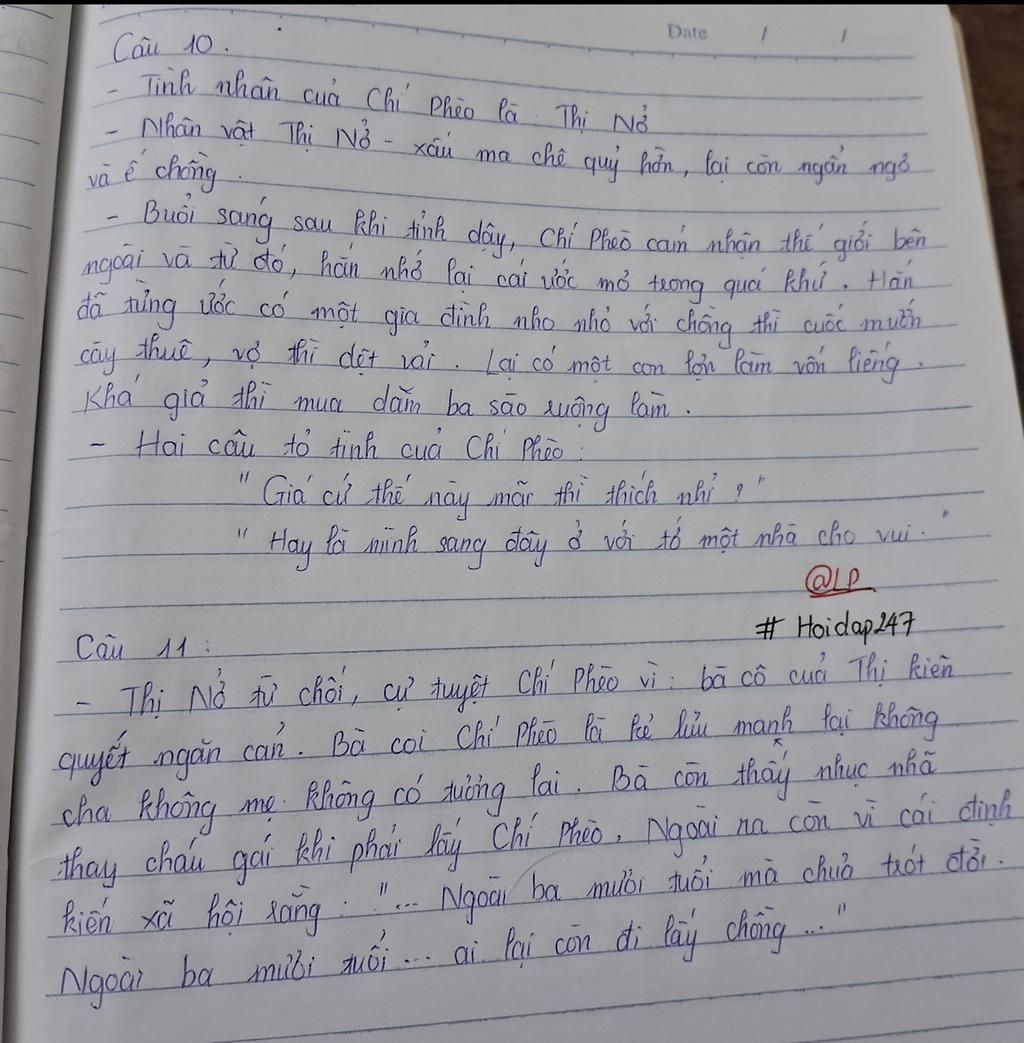 Date / /
Câu 10.
- Tình nhân cuả Chí Phèo là : Thị Nở
- Nhân vật Thị Nở - xấu ma chê quỷ hờn, lại còn ngẩn ngơ
và ế chồng.
- Buổi sáng sau khi tỉnh dậy, Chí Phèo cảm nhận thế giới bên
ngoài và từ đó, hắn nhớ lại cái ước mơ trong quá khứ. Hắn
đã từng ước có một gia đình nho nhỏ với chồng thì cuốc mướn
cày thuê, vợ thì dệt vải. Lại có một con lợn làm vốn liếng.
Khá giả thì mua dăm ba sào ruộng làm.
- Hai câu tỏ tình cuả Chí Phèo:
" Giá cứ thế này mãi thì thích nhỉ ? "
" Hay là mình sang đây ở với tớ một nhà cho vui. "
@LP
# Hoidap247
Câu 11 :
- Thị Nở từ chối, cự tuyệt Chí Phèo vì : bà cô cuả Thị kiên
quyết ngăn cản. Bà coi Chí Phèo là kẻ lưu manh lại không
cha không mẹ. không có tương lai. Bà còn thấy nhục nhã
thay cháu gái khi phải lấy Chí Phèo. Ngoài ra còn vì cái định
kiến xã hội rằng : "... Ngoài ba mươi tuổi mà chưa trót đời.
Ngoài ba mươi tuổi ... ai lại còn đi lấy chồng ..."